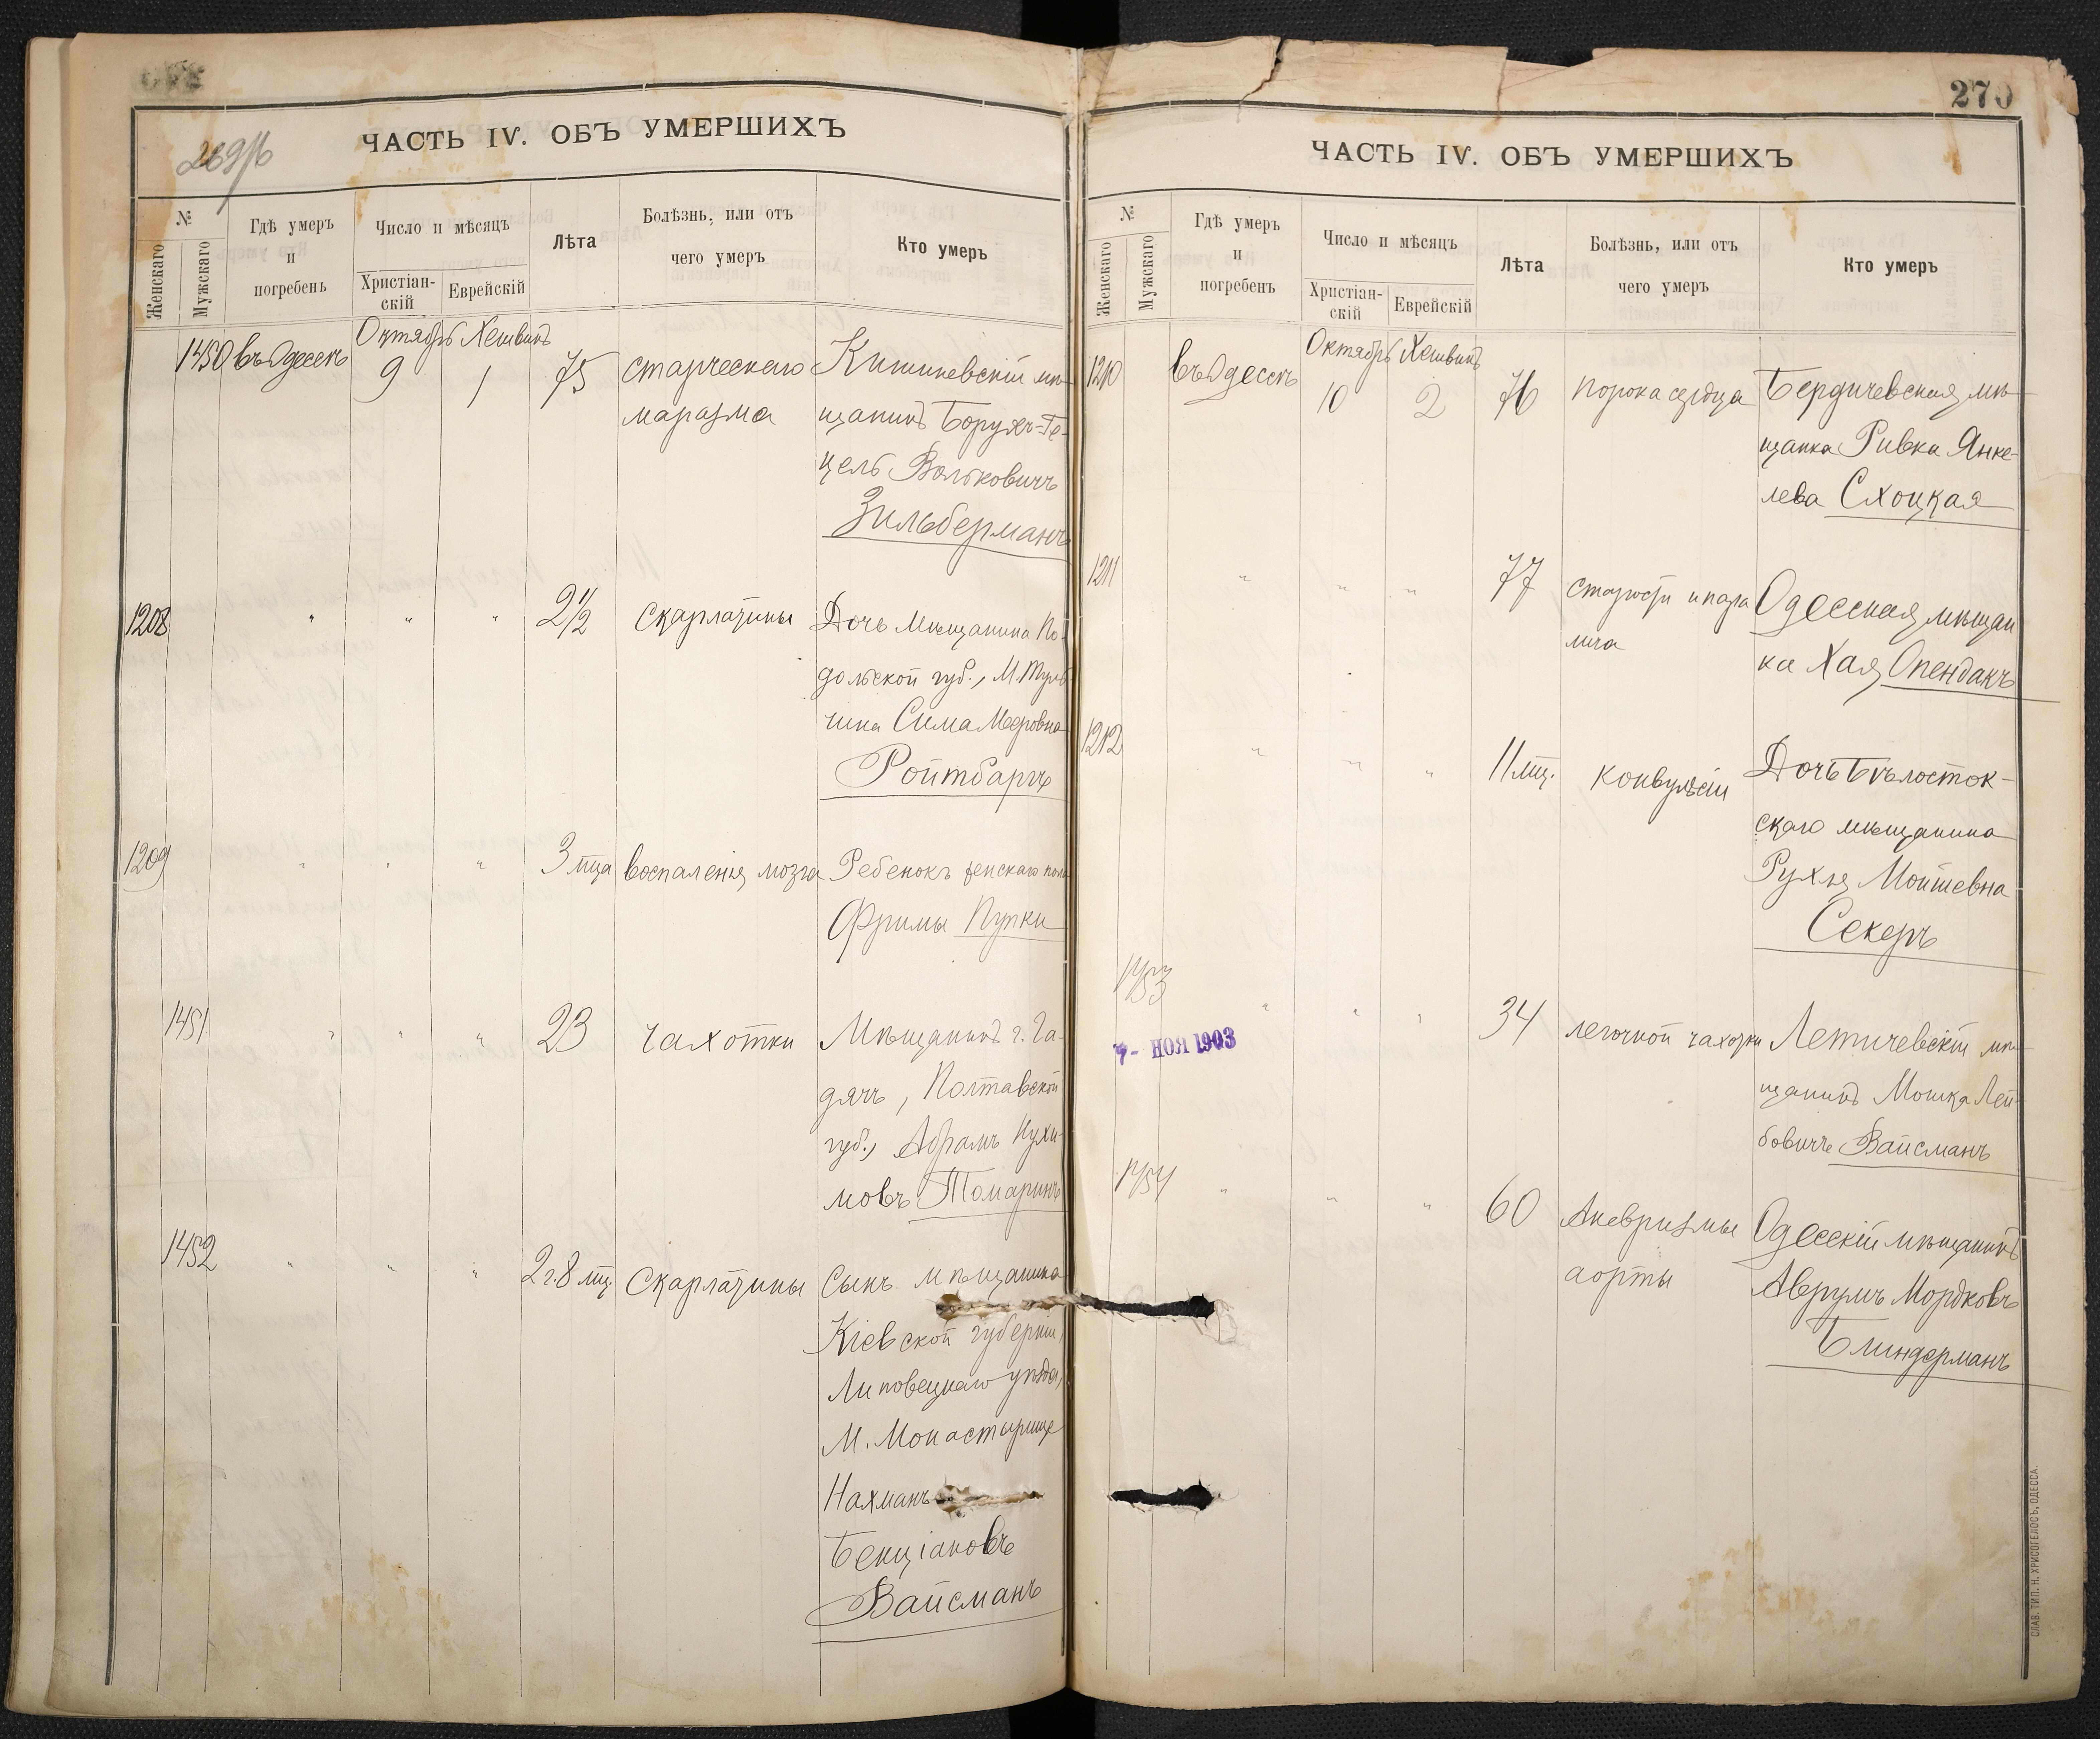 269/б
ЧАСТЬ IV. ОБЪ УМЕРШИХЪ
№
Женскаго
Мужскаго
Гдѣ умеръ
и
погребенъ
Число и мѣсяцъ
Христіан-
скій
Еврейскій
Лѣта
Болѣзнь, или отъ
чего умеръ
Кто умеръ
Октябрь Хешванъ
1450 въ Одессѣ 9 1 75 старческаго Кишиневскій мѣ-
маразма щанинъ Борухъ-Ге-
цель Вольковичъ
Зильберманъ
1208 " " " 2 1/2 скарлатины Дочь мѣщанина По-
дольской губ., М. Туль-
чина Сима Меровна
Ройтбаргъ
1209 " " " 3 мца воспаленія мозга Ребенокъ женскаго пола
Фримы Пупки
1451 " " " 23 чахотки Мѣщанинъ г. Га-
дячъ, Полтавской
губ., Абрамъ Нухи-
мовъ Томаринъ
1452 " " " 2 г. 8 мц. Скарлатины Сынъ мѣщанина
Кіевской губерніи,
Липовецкаго уѣзда,
М. Монастырище
Нахманъ
Бенціановъ
Вайсманъ
270
ЧАСТЬ IV. ОБЪ УМЕРШИХЪ
№
Женскаго
Мужскаго
Гдѣ умеръ
и
погребенъ
Число и мѣсяцъ
Христіан-
скій
Еврейскій
Лѣта
Болѣзнь, или отъ
чего умеръ
Кто умеръ
Октябрь Хешванъ
1210 въ Одессѣ 10 2 76 порока сердца Бердичевская мѣ-
щанка Ривка Янке-
лева Схоцкая
1211 " " " 77 старости и пара Одесская мѣщан
лича ка Хая Опендакъ
1212 " " " 11 мц. конвульсіи Дочь Бѣлосток-
скаго мѣщанина
Рухля Мошевна
Секеръ
1453 " " " 34 легочной чахотки Летичевскій мѣ-
7- НОЯ 1903
щанинъ Мошка Лей-
бовичъ Вайсманъ
1454 " " " 60 Аневризмы Одесскій мѣщанинъ
аорты Аврумъ Мордковъ
Блиндерманъ
СЛАВ. ТИП. Н. ХРИСОГЕЛОСЪ, ОДЕССА.